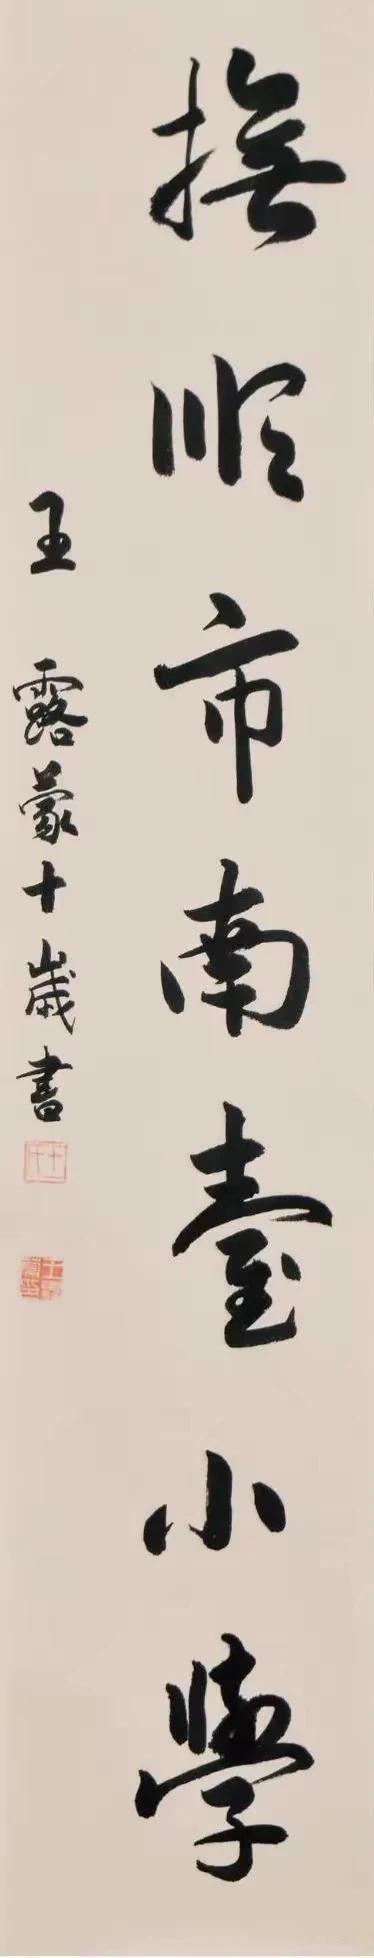 撫順市南臺小學
王露蒙十歲書